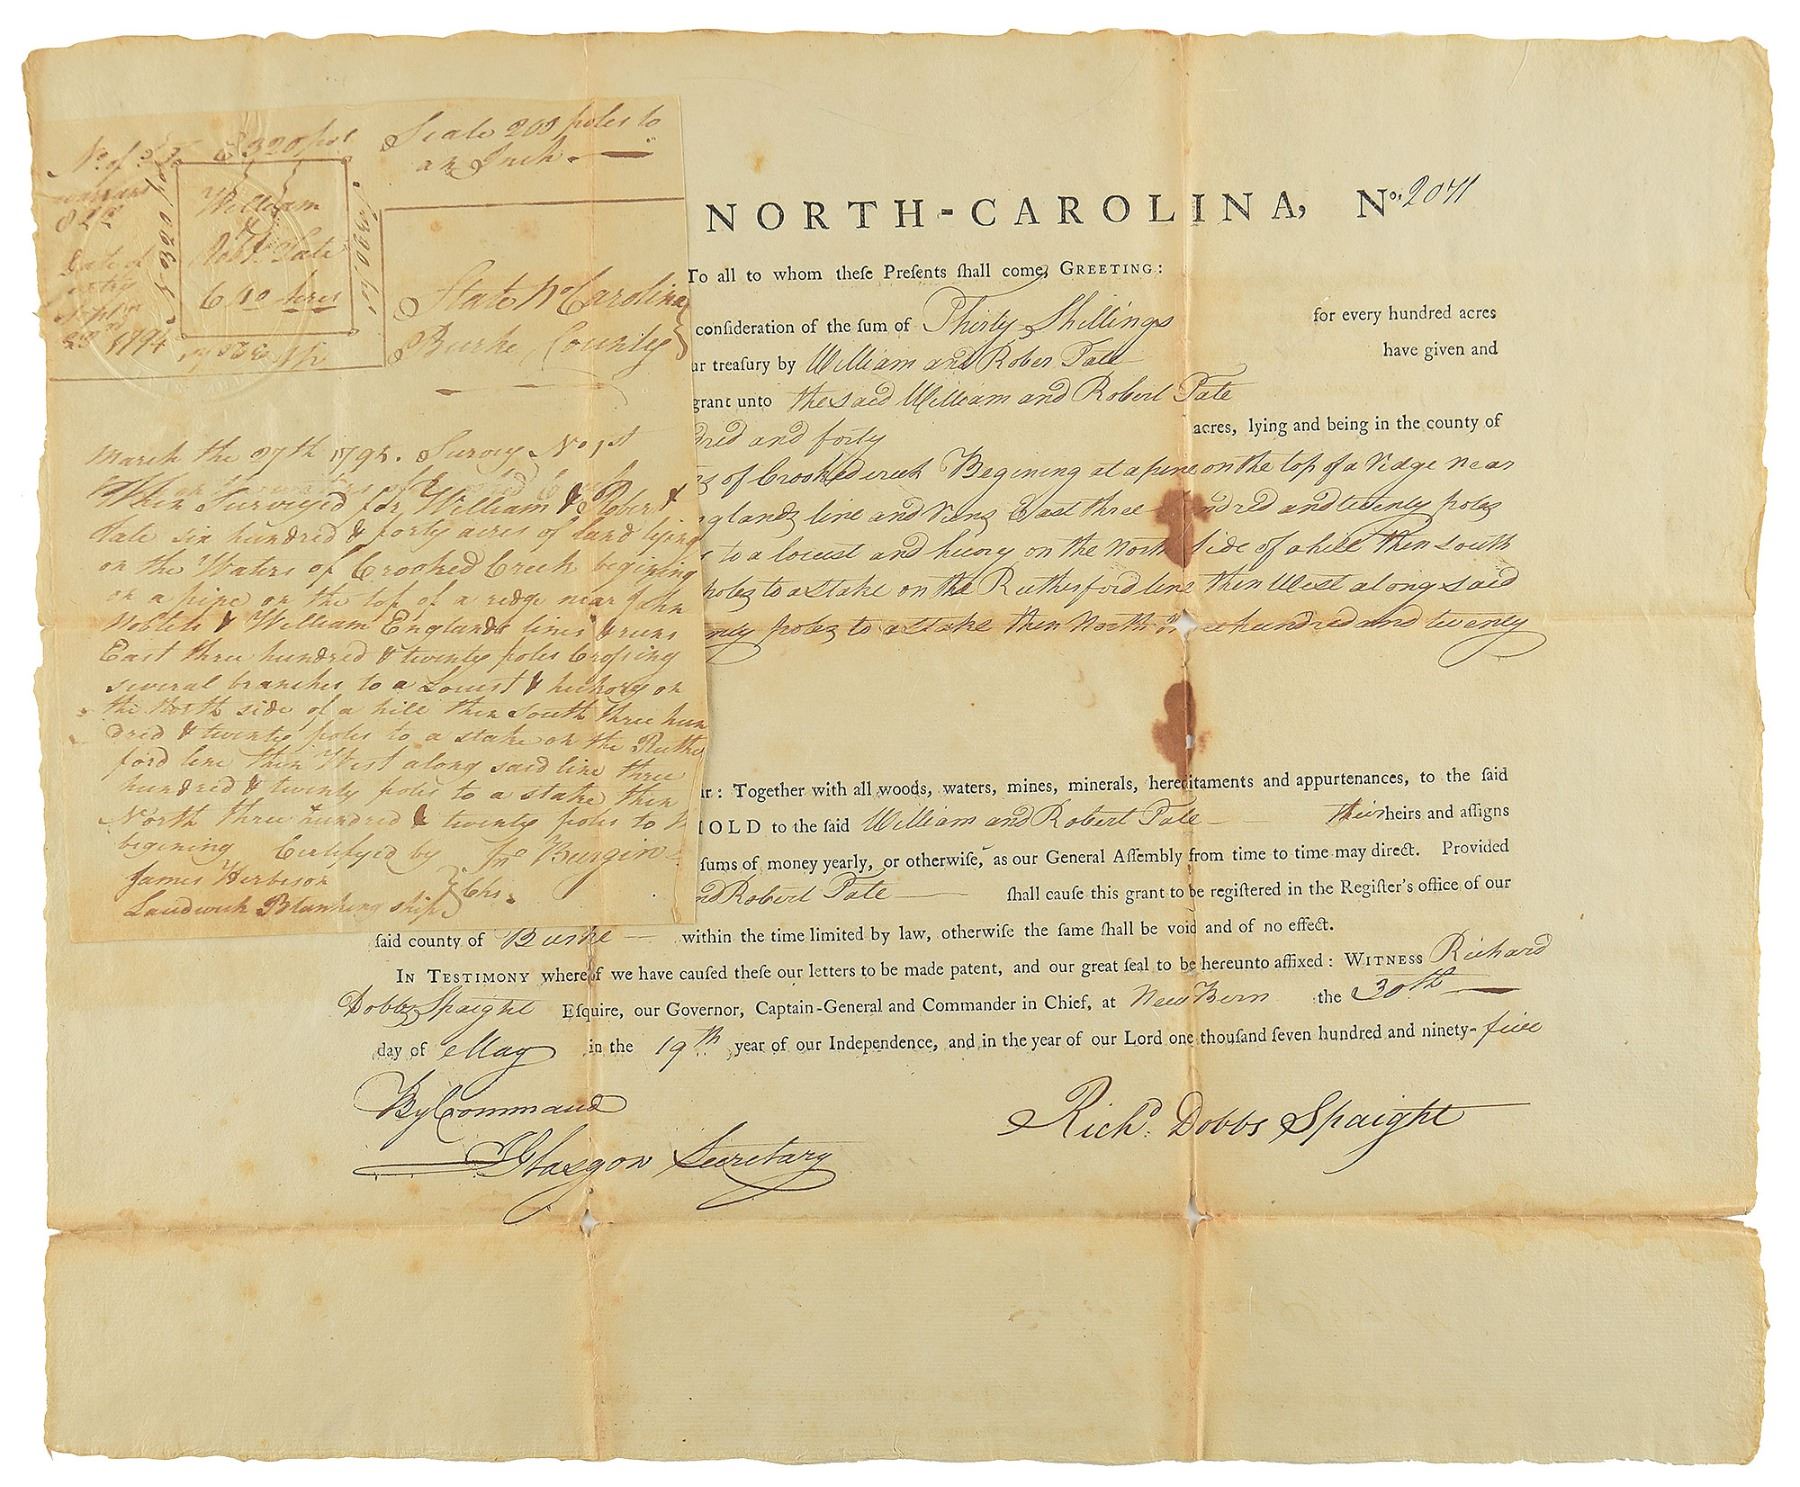 No. of
warrant
822
Date of
entry
Sept
23rd 1794
E 320 pol
William
& Robt Tate
640 Acres
N 320 po
S 320 po
W 320 po
Scale 200 poles to
an Inch.
State No Carolina
Burke County
March the 27th 1795. Survey No 1st
Then Surveyed for William & Robert
tate six hundred & forty acres of land lying
on the Waters of Crooked Creek begining
on a pine on the top of a redge near John
Noblets & William Englands lines & runs
East three hundred & twenty poles Crossing
several branches to a Locust & hickory on
the North side of a hill then South three hun
dred & twenty poles to a stake on the Ruther
ford line then West along said line three
hundred & twenty poles to a stake then
North three hundred & twenty poles to
begining Certifyed by Jno Burgin
James Herbison
Landwick Blankingship } Chs.
NORTH-CAROLINA, No. 2071
To all to whom theſe Preſents ſhall come, GREETING:
conſideration of the ſum of Thirty Shillings for every hundred acres
ur treaſury by William and Rober Tate have given and
grant unto the said William and Robert Tate
dred and forty acres, lying and being in the county of
of Crooked creek Begining at a pine on the top of a ridge near
glands line and runs East three hundred and twenty poles
to a locust and hicory on the North side of a hill then south
poles to a stake on the Rutherford line then West along said
nty poles to a stake then North three hundred and twenty
ar: Together with all woods, waters, mines, minerals, hereditaments and appurtenances, to the ſaid
HOLD to the ſaid William and Robert Tate their heirs and aſſigns
ſums of money yearly, or otherwiſe, as our General Aſſembly from time to time may direct. Provided
nd Robert Tate ſhall cauſe this grant to be regiſtered in the Regiſter's office of our
ſaid county of Burke within the time limited by law, otherwiſe the ſame ſhall be void and of no effect.
IN TESTIMONY whereof we have cauſed theſe our letters to be made patent, and our great ſeal to be hereunto affixed: WITNESS Richard
Dobbs Spaight Eſquire, our Governor, Captain-General and Commander in Chief, at New Bern the 30th
day of May in the 19th year of our Independence, and in the year of our Lord one thouſand ſeven hundred and ninety-five
By Command
J Glasgow Secretary
Richd. Dobbs Spaight